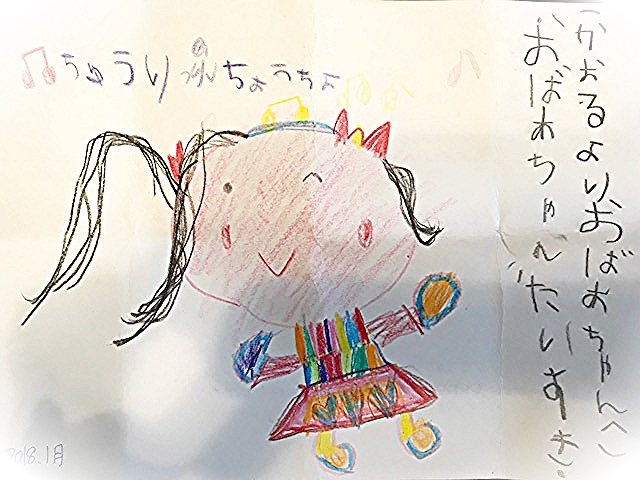 ちゅうりっぷのちょうちょ
(かおるよりおばあちゃんへ)
おばあちゃんだいすき。
2018.1月